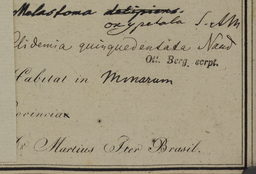 Melastoma decipiens.
oxypetala S. AM
Clidemia quinquedentata Naud
Ott. Berg. scrpt.
Habitat in Minarum
Provincia
Martius Iter Brasil.